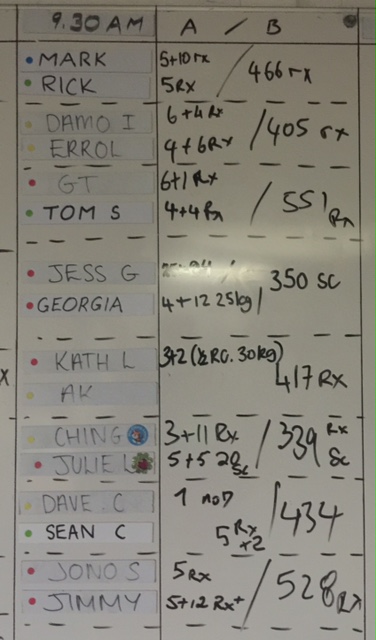 9.30 AM A / B
MARK 5+10 rx / 466 rx
RICK 5 Rx
DAMO I 6+4 Rx / 405 rx
ERROL 4+6 Rx
GT 6+1 Rx / 551 Rx
TOM S 4+4 Rx
JESS G / 350 sc
GEORGIA 4+12 25kg /
KATH L 3+2 (½ RC. 30kg) 417 Rx
X
AK
CHING 3+11 Rx / 339 Rx
JULIE L 5+5 20 Sc Sc
DAVE C 1 / 434
SEAN C 5 Rx +2
JONO S 5 Rx / 528 Rx
JIMMY 5+12 Rx+